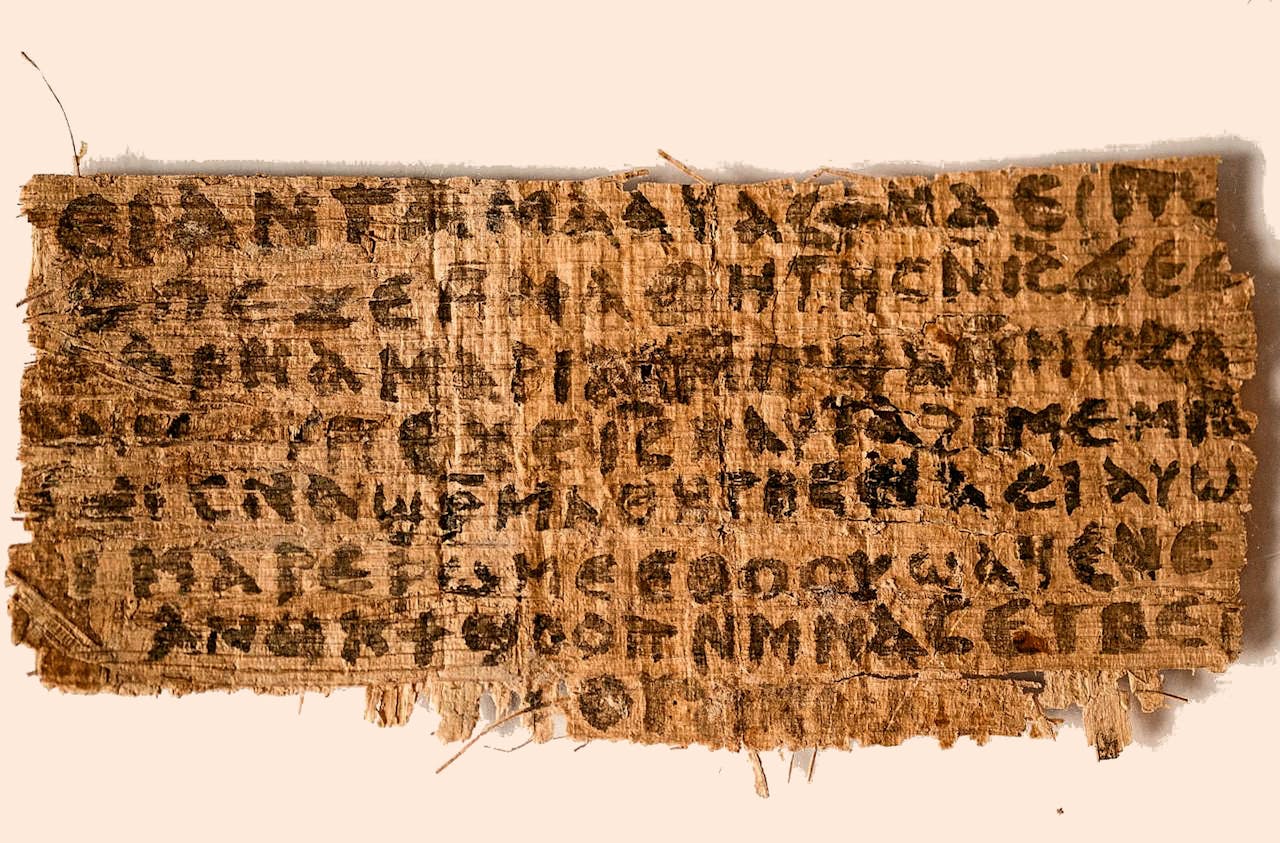 ⲉⲓ ⲁⲛ ⲧⲁⲙⲁⲁⲩ ⲁⲥϯ ⲛⲁⲉⲓ ⲡⲱ
ⲥ ⲡⲉϫⲉ ⲙⲙⲁⲑⲏⲧⲏⲥ ⲛⲓ̅ⲥ̅ ϫⲉ ⲥ
ⲁⲣⲛⲁ ⲙⲁⲣⲓⲁⲙ ⲙⲡϣⲁ ⲙⲙⲟⲥ ⲁ
ⲡⲉϫⲉ ⲓ̅ⲥ̅ ⲛⲁⲩ ⲧⲁϩⲓⲙⲉ ⲙⲛ
ⲥⲛⲁϣⲣ̅ⲙⲁⲑⲏⲧⲏⲥ ⲛⲁⲉⲓ ⲁⲩⲱ
ⲓ ⲙⲁⲣⲉⲣⲱⲙⲉ ⲉⲑⲟⲟⲩ ϣⲁϥⲉ ⲛⲉ
ⲁⲛⲟⲕ ϯϣⲟⲟⲡ ⲛⲙⲙⲁⲥ ⲉⲧⲃⲉ ⲡ